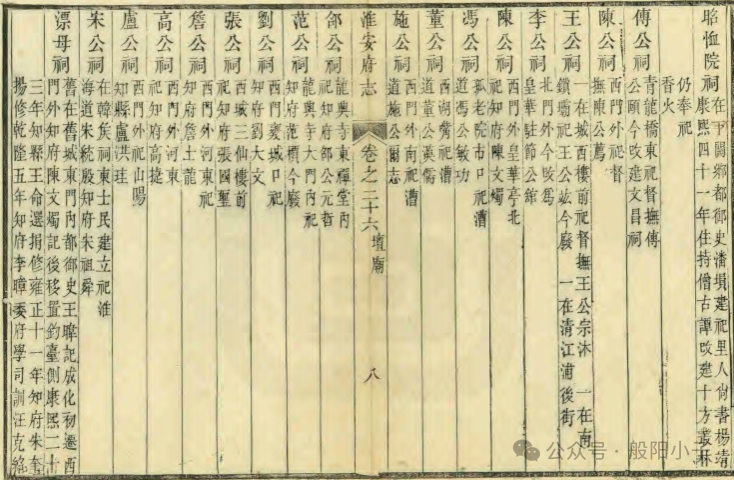 昭恤院祠 在下關鄉都御史潘塤建祀里人尚書楊靖
康熙四十一年住持僧古譚改建十方叢林
仍奉祀
香火
傅公祠 青龍橋東祀督撫傅
公頤今改建文昌祠
陳公祠 西門外祀督
撫陳公薦
王公祠 一在城西樓前祀督撫王公宗沐 一在南
鎖壩祀王公竑今廢 一在清江浦後街
李公祠 北門外今改爲
皇華駐節公館
陳公祠 西門外皇華亭北
祀知府陳文燭
馮公祠 孤老院市口祀漕
道馮公敏功
董公祠 西湖嘴祀漕
道董公漢儒
施公祠 西門外南祀漕
道施公爾志
淮安府志 卷之二十六 壇廟 八
邵公祠 龍興寺東禪堂內
祀知府邵公元哲
范公祠 龍興寺大門內祀
知府范檟今廢
劉公祠 西門裏城口祀
知府劉大文
張公祠 西城三仙樓前
祀知府張國璽
詹公祠 西門外河東祀
知府詹士龍
高公祠 西門外河東
祀知府高捷
盧公祠 西門外祀山陽
知縣盧洪珪
朱公祠 在韓侯祠東士民建立祀淮
海道朱統殷知府朱祖舜
漂母祠 舊在舊城東門內都御史王暐記成化初遷西
門外知府陳文燭記後移置釣臺側康熙二十
三年知縣王命選捐修雍正十一年知府朱奎
揚修乾隆五年知府李暲委府學司訓汪克紹
公众号·般阳小子